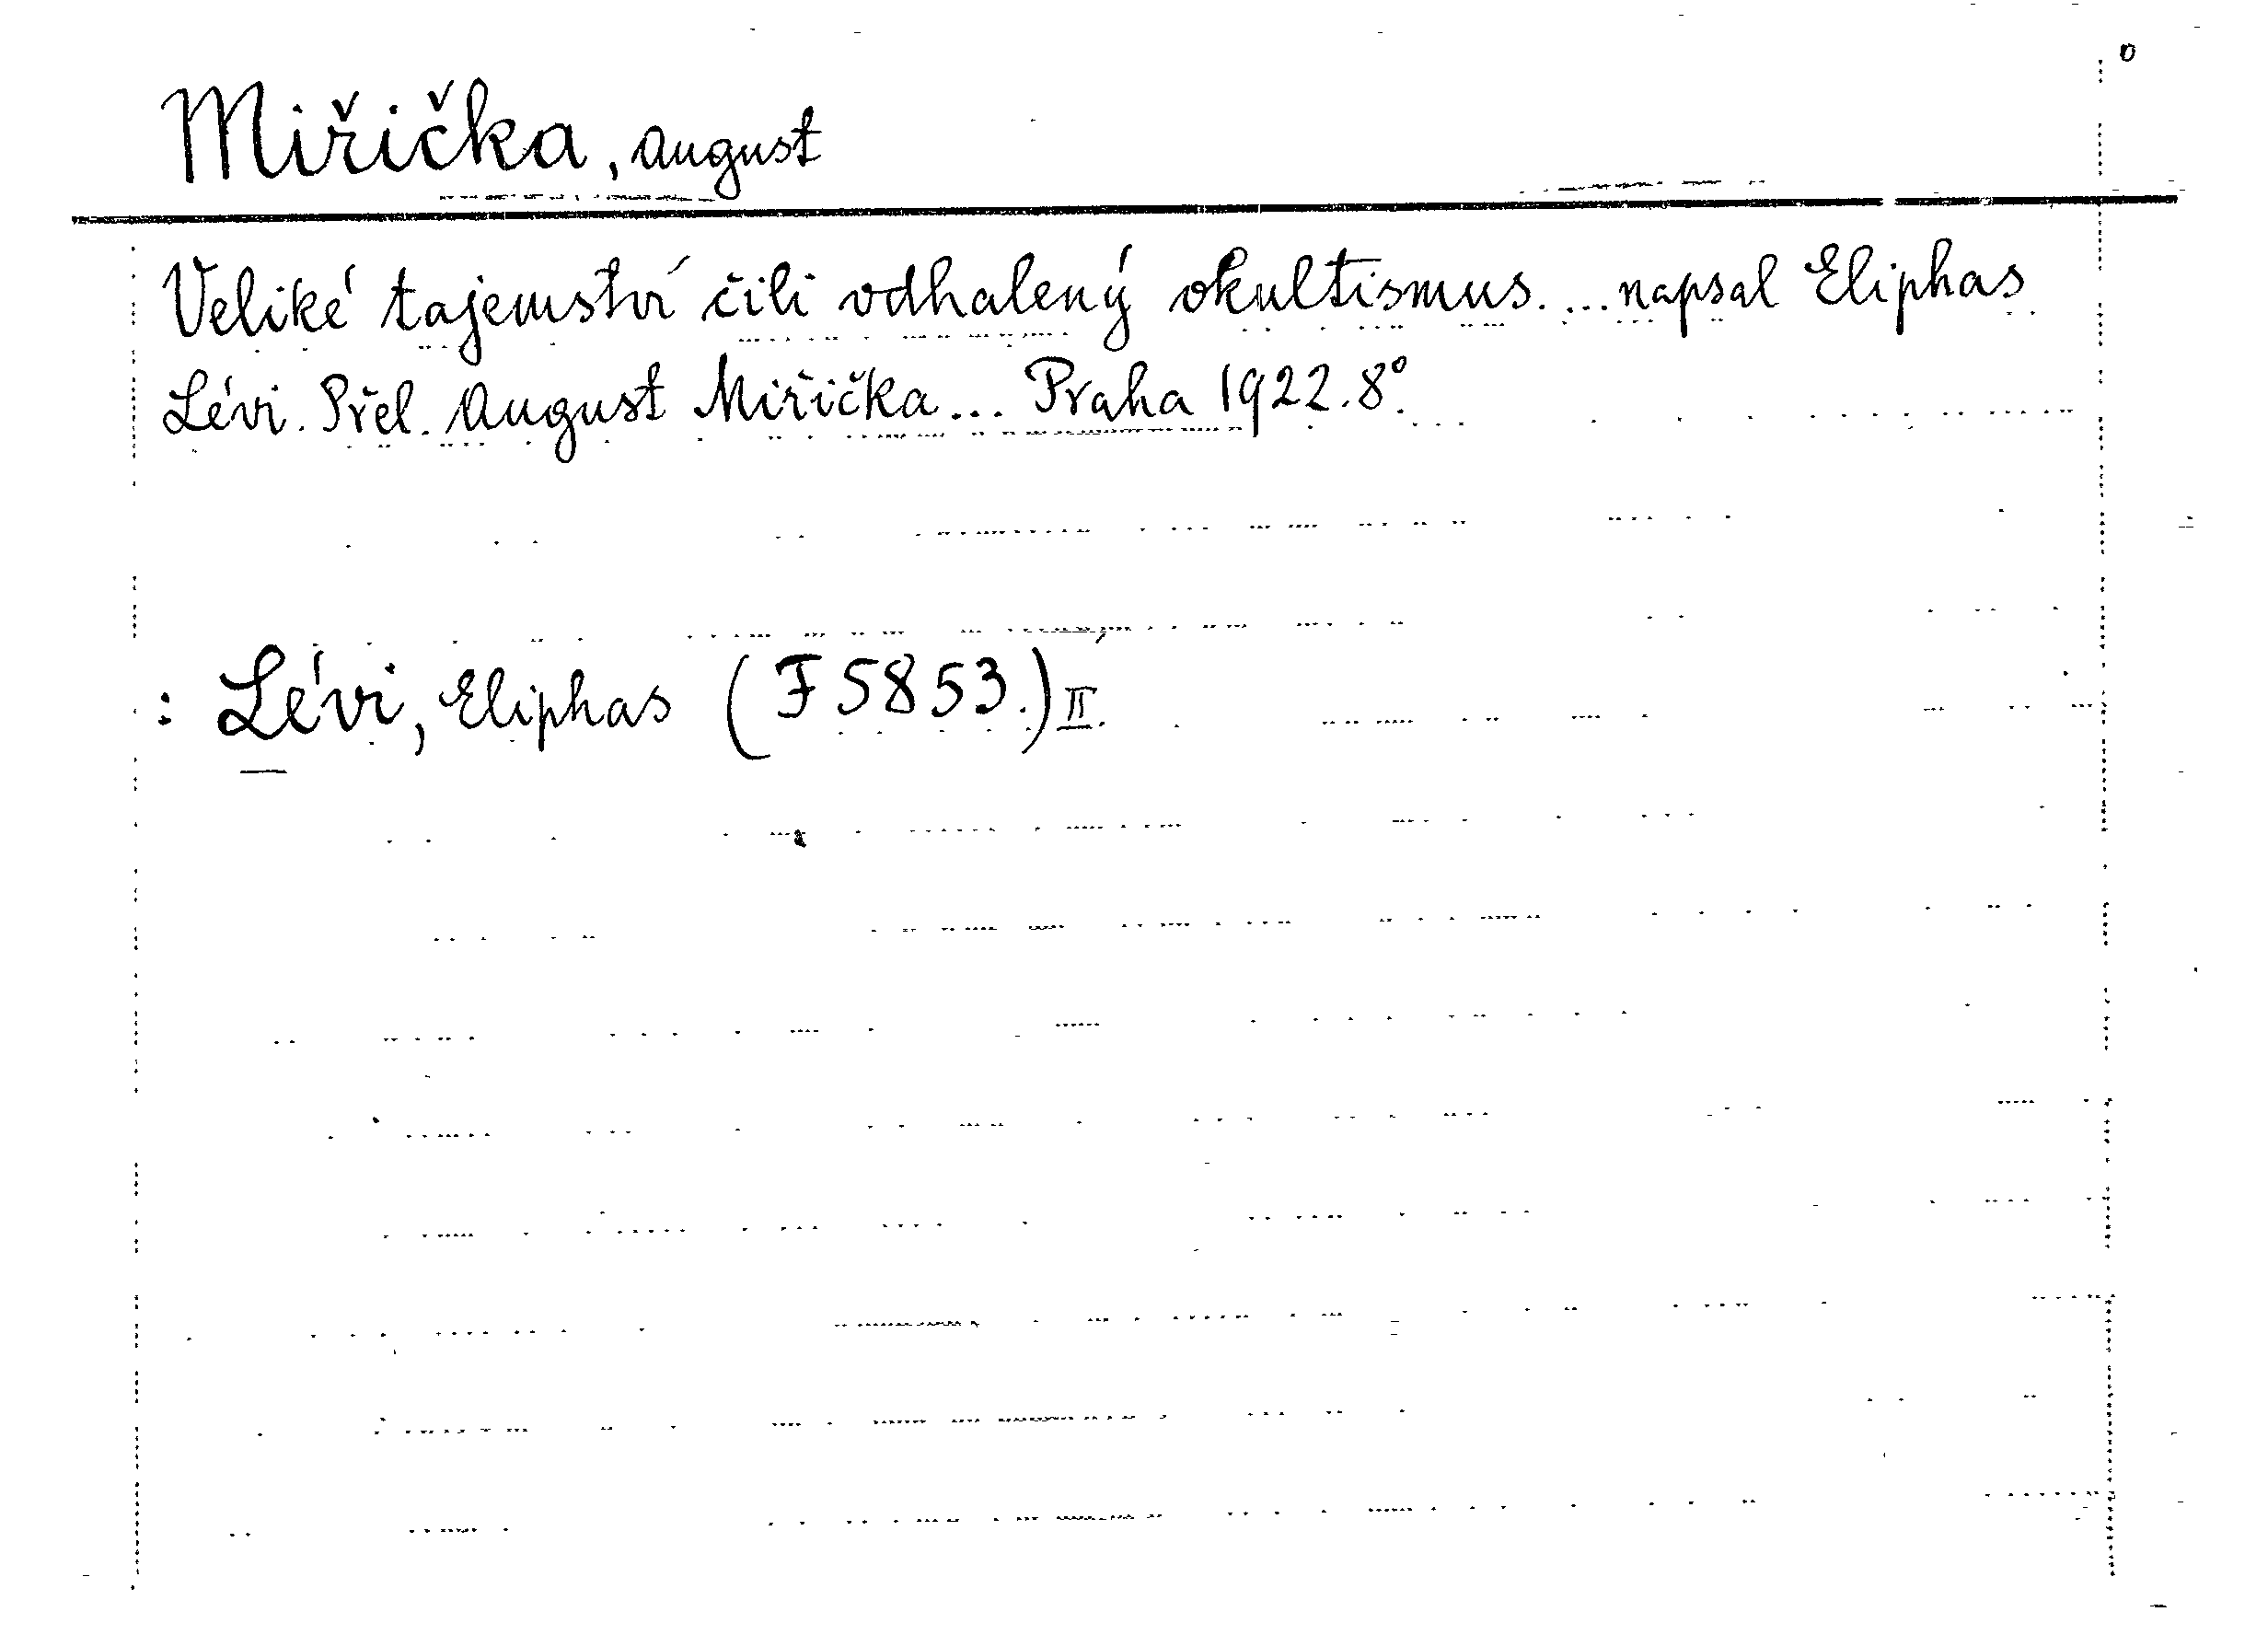 Miřička, August
Veliké tajemství čili odhalený okultismus. ... napsal Eliphas
Lévi. Přel. August Miřička... Praha 1922. 8°.
: Lévi, Eliphas (F 5853.) II.